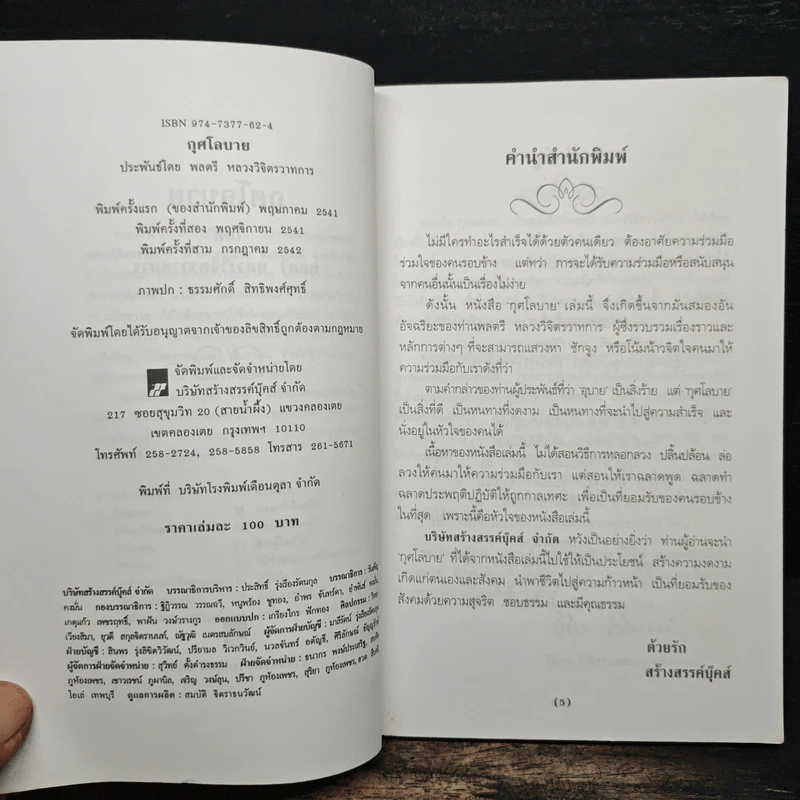 ISBN 974-7377-62-4
กุศโลบาย
ประพันธ์โดย พลตรี หลวงวิจิตรวาทการ
พิมพ์ครั้งแรก (ของสำนักพิมพ์) พฤษภาคม 2541
พิมพ์ครั้งที่สอง พฤศจิกายน 2541
พิมพ์ครั้งที่สาม กรกฎาคม 2542
ภาพปก : ธรรมศักดิ์ สิทธิพงศ์ศุทธิ์
จัดพิมพ์โดยได้รับอนุญาตจากเจ้าของลิขสิทธิ์ถูกต้องตามกฎหมาย
จัดพิมพ์และจัดจำหน่ายโดย
บริษัทสร้างสรรค์บุ๊คส์ จำกัด
217 ซอยสุขุมวิท 20 (สายน้ำผึ้ง) แขวงคลองเตย
เขตคลองเตย กรุงเทพฯ 10110
โทรศัพท์ 258-2724, 258-5858 โทรสาร 261-5671
พิมพ์ที่ บริษัทโรงพิมพ์เดือนตุลา จำกัด
ราคาเล่มละ 100 บาท
บริษัทสร้างสรรค์บุ๊คส์ จำกัด บรรณาธิการบริหาร : ประสิทธิ์ รุ่งเรืองรัตนกุล บรรณาธิการ :
คงมั่น กองบรรณาธิการ : ฐิฏิวรรณ วรรณฉวี, หนูพร้อง ชูทอง, อำพร จันทร์ดา, อำพันธ์
เกตุแก้ว เพชรฤทธิ์, พาฝัน วงษ์วรางกูร ออกแบบปก : เกรียงไกร ฟักทอง ศิลปกรรม :
เวียงสิมา, ยุวดี สกุลจิตรานนท์, ณัฐวุฒิ เนตรสมลักษณ์ ผู้จัดการฝ่ายบัญชี : มาลีรัตน์
ฝ่ายบัญชี : สินพร รุ่งลิขิตวิวัฒน์, ปริยามล วิเวกวินย์, นวลจันทร์ อตัญธี, ศิริลักษณ์
ผู้จัดการฝ่ายจัดจำหน่าย : สุวิทย์ ตั้งดำรงธรรม ฝ่ายจัดจำหน่าย : ธนากร พงษ์ประเสริฐ,
ภูห้องเพชร, เชาวเรชน์ ภูผานิล, เจริญ วงษ์สุน, ปรีชา ภูห้องเพชร, สุริยา ภูห้องเพชร,
โยเล่ เทพบุรี ดูแลการผลิต : สมบัติ จิตราธนวัฒน์
คำนำสำนักพิมพ์
ไม่มีใครทำอะไรสำเร็จได้ด้วยตัวคนเดียว ต้องอาศัยความร่วมมือ
ร่วมใจของคนรอบข้าง แต่ทว่า การจะได้รับความร่วมมือหรือสนับสนุน
จากคนอื่นนั้นเป็นเรื่องไม่ง่าย
ดังนั้น หนังสือ 'กุศโลบาย' เล่มนี้ จึงเกิดขึ้นจากมันสมองอัน
อัจฉริยะของท่านพลตรี หลวงวิจิตรวาทการ ผู้ซึ่งรวบรวมเรื่องราวและ
หลักการต่างๆ ที่จะสามารถแสวงหา ชักจูง หรือโน้มน้าวจิตใจคนมาให้
ความร่วมมือกับเราดังที่ว่า
ตามคำกล่าวของท่านผู้ประพันธ์ที่ว่า 'อุบาย' เป็นสิ่งร้าย แต่ 'กุศโลบาย'
เป็นสิ่งที่ดี เป็นหนทางที่งดงาม เป็นหนทางที่จะนำไปสู่ความสำเร็จ และ
นั่งอยู่ในหัวใจของคนได้
เนื้อหาของหนังสือเล่มนี้ ไม่ได้สอนวิธีการหลอกลวง ปลิ้นปล้อน ล่อ
ลวงให้คนมาให้ความร่วมมือกับเรา แต่สอนให้เราฉลาดพูด ฉลาดทำ
ฉลาดประพฤติปฏิบัติให้ถูกกาลเทศะ เพื่อเป็นที่ยอมรับของคนรอบข้าง
ในที่สุด เพราะนี้คือหัวใจของหนังสือเล่มนี้
บริษัทสร้างสรรค์บุ๊คส์ จำกัด หวังเป็นอย่างยิ่งว่า ท่านผู้อ่านจะนำ
'กุศโลบาย' ที่ได้จากหนังสือเล่มนี้ไปใช้ให้เป็นประโยชน์ สร้างความงดงาม
เกิดแก่ตนเองและสังคม นำพาชีวิตไปสู่ความก้าวหน้า เป็นที่ยอมรับของ
สังคมด้วยความสุจริต ชอบธรรม และมีคุณธรรม
ด้วยรัก
สร้างสรรค์บุ๊คส์
(5)